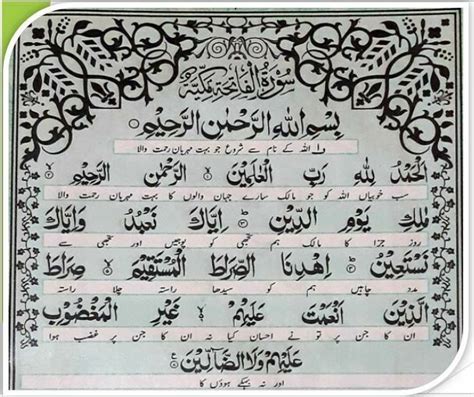 سُوْرَۃُ الْفَاتِحَۃِ مَکِّیَّۃٌ
بِسْمِ اللّٰہِ الرَّحْمٰنِ الرَّحِیْمِ
اللہ کے نام سے شروع جو بہت مہربان رحمت والا
اَلْحَمْدُ لِلّٰہِ رَبِّ الْعٰلَمِیْنَ ۙ الرَّحْمٰنِ الرَّحِیْمِ ۙ
سب خوبیاں اللہ کو جو مالک سارے جہان والوں کا بہت مہربان رحمت والا
مٰلِکِ یَوْمِ الدِّیْنِ ؕ اِیَّاکَ نَعْبُدُ وَ اِیَّاکَ
روز جزا کا مالک ہم تجھی کو پوجیں اور تجھی سے
نَسْتَعِیْنُ ؕ اِھْدِنَا الصِّرَاطَ الْمُسْتَقِیْمَ ۙ صِرَاطَ
مدد چاہیں ہم کو سیدھا راستہ چلا راستہ
الَّذِیْنَ اَنْعَمْتَ عَلَیْہِمْ ۙ غَیْرِ الْمَغْضُوْبِ
ان کا جن پر تو نے احسان کیا نہ ان کا جن پر غضب ہوا
عَلَیْہِمْ وَلَا الضَّآلِّیْنَ
اور نہ بہکے ہوؤں کا